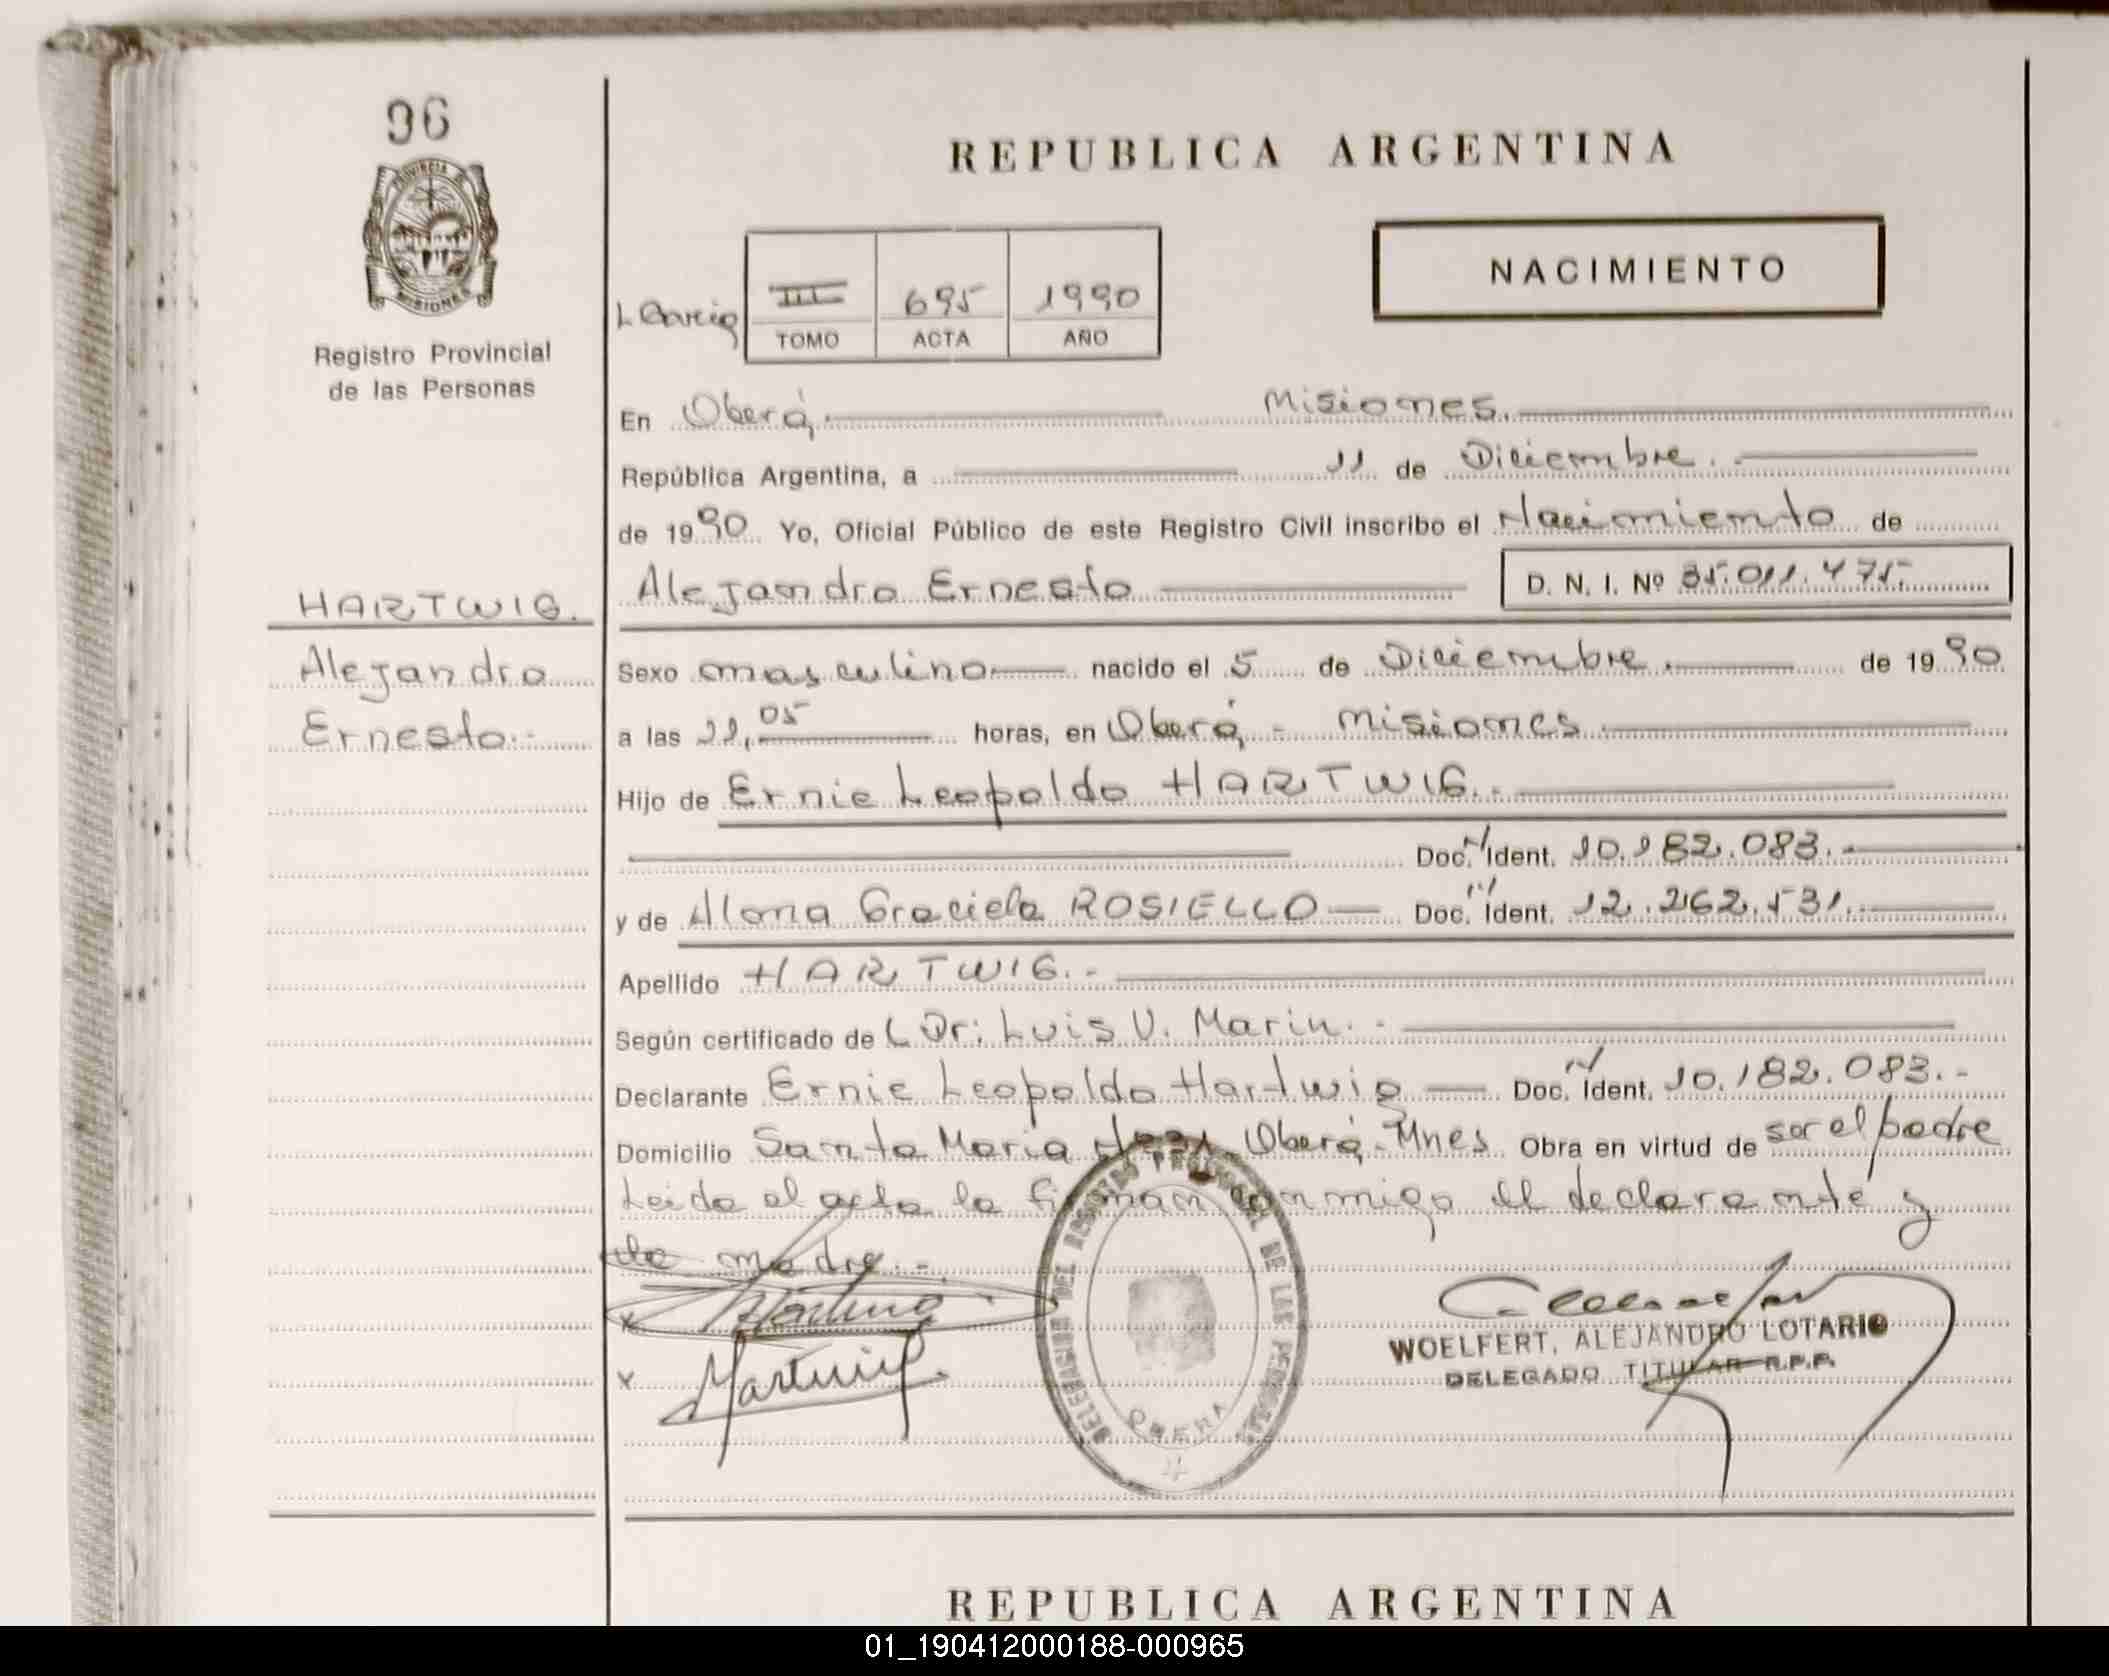 96
PROVINCIA
MISIONES
Registro Provincial
de las Personas
REPUBLICA ARGENTINA
NACIMIENTO
L Garcia
III 695 1990
TOMO ACTA AÑO
En Oberá, Misiones.
República Argentina, a 11 de Diciembre.
de 1990 Yo, Oficial Público de este Registro Civil inscribo el Nacimiento de
HARTWIG.
Alejandro Ernesto D. N. I. Nº 35.011.475.
Alejandro
Sexo masculino nacido el 5 de Diciembre. de 1990
Ernesto.-
a las 22,05 horas, en Oberá, - Misiones
Hijo de Ernie Leopoldo HARTWIG.-
Doc. Ident. 10.182.083.-
y de Graciela ROSIELLO Doc. Ident. 12.262.531.
Apellido HARTWIG.-
Según certificado de Dr: Luis V. Marin.-
Declarante Ernie Leopoldo Hartwig Doc. Ident. 10.182.083.-
Domicilio Santa Maria Oberá-Mnes Obra en virtud de ser el padre
Leida el acta la firman conmigo el declarante y
la madre.-
x
x Hartwig
DELEGACION DEL REGISTRO PROVINCIAL DE LAS PERSONAS
OBERA
WOELFERT, ALEJANDRO LOTARIO
DELEGADO TITULAR R.P.P.
REPUBLICA ARGENTINA
01_190412000188-000965